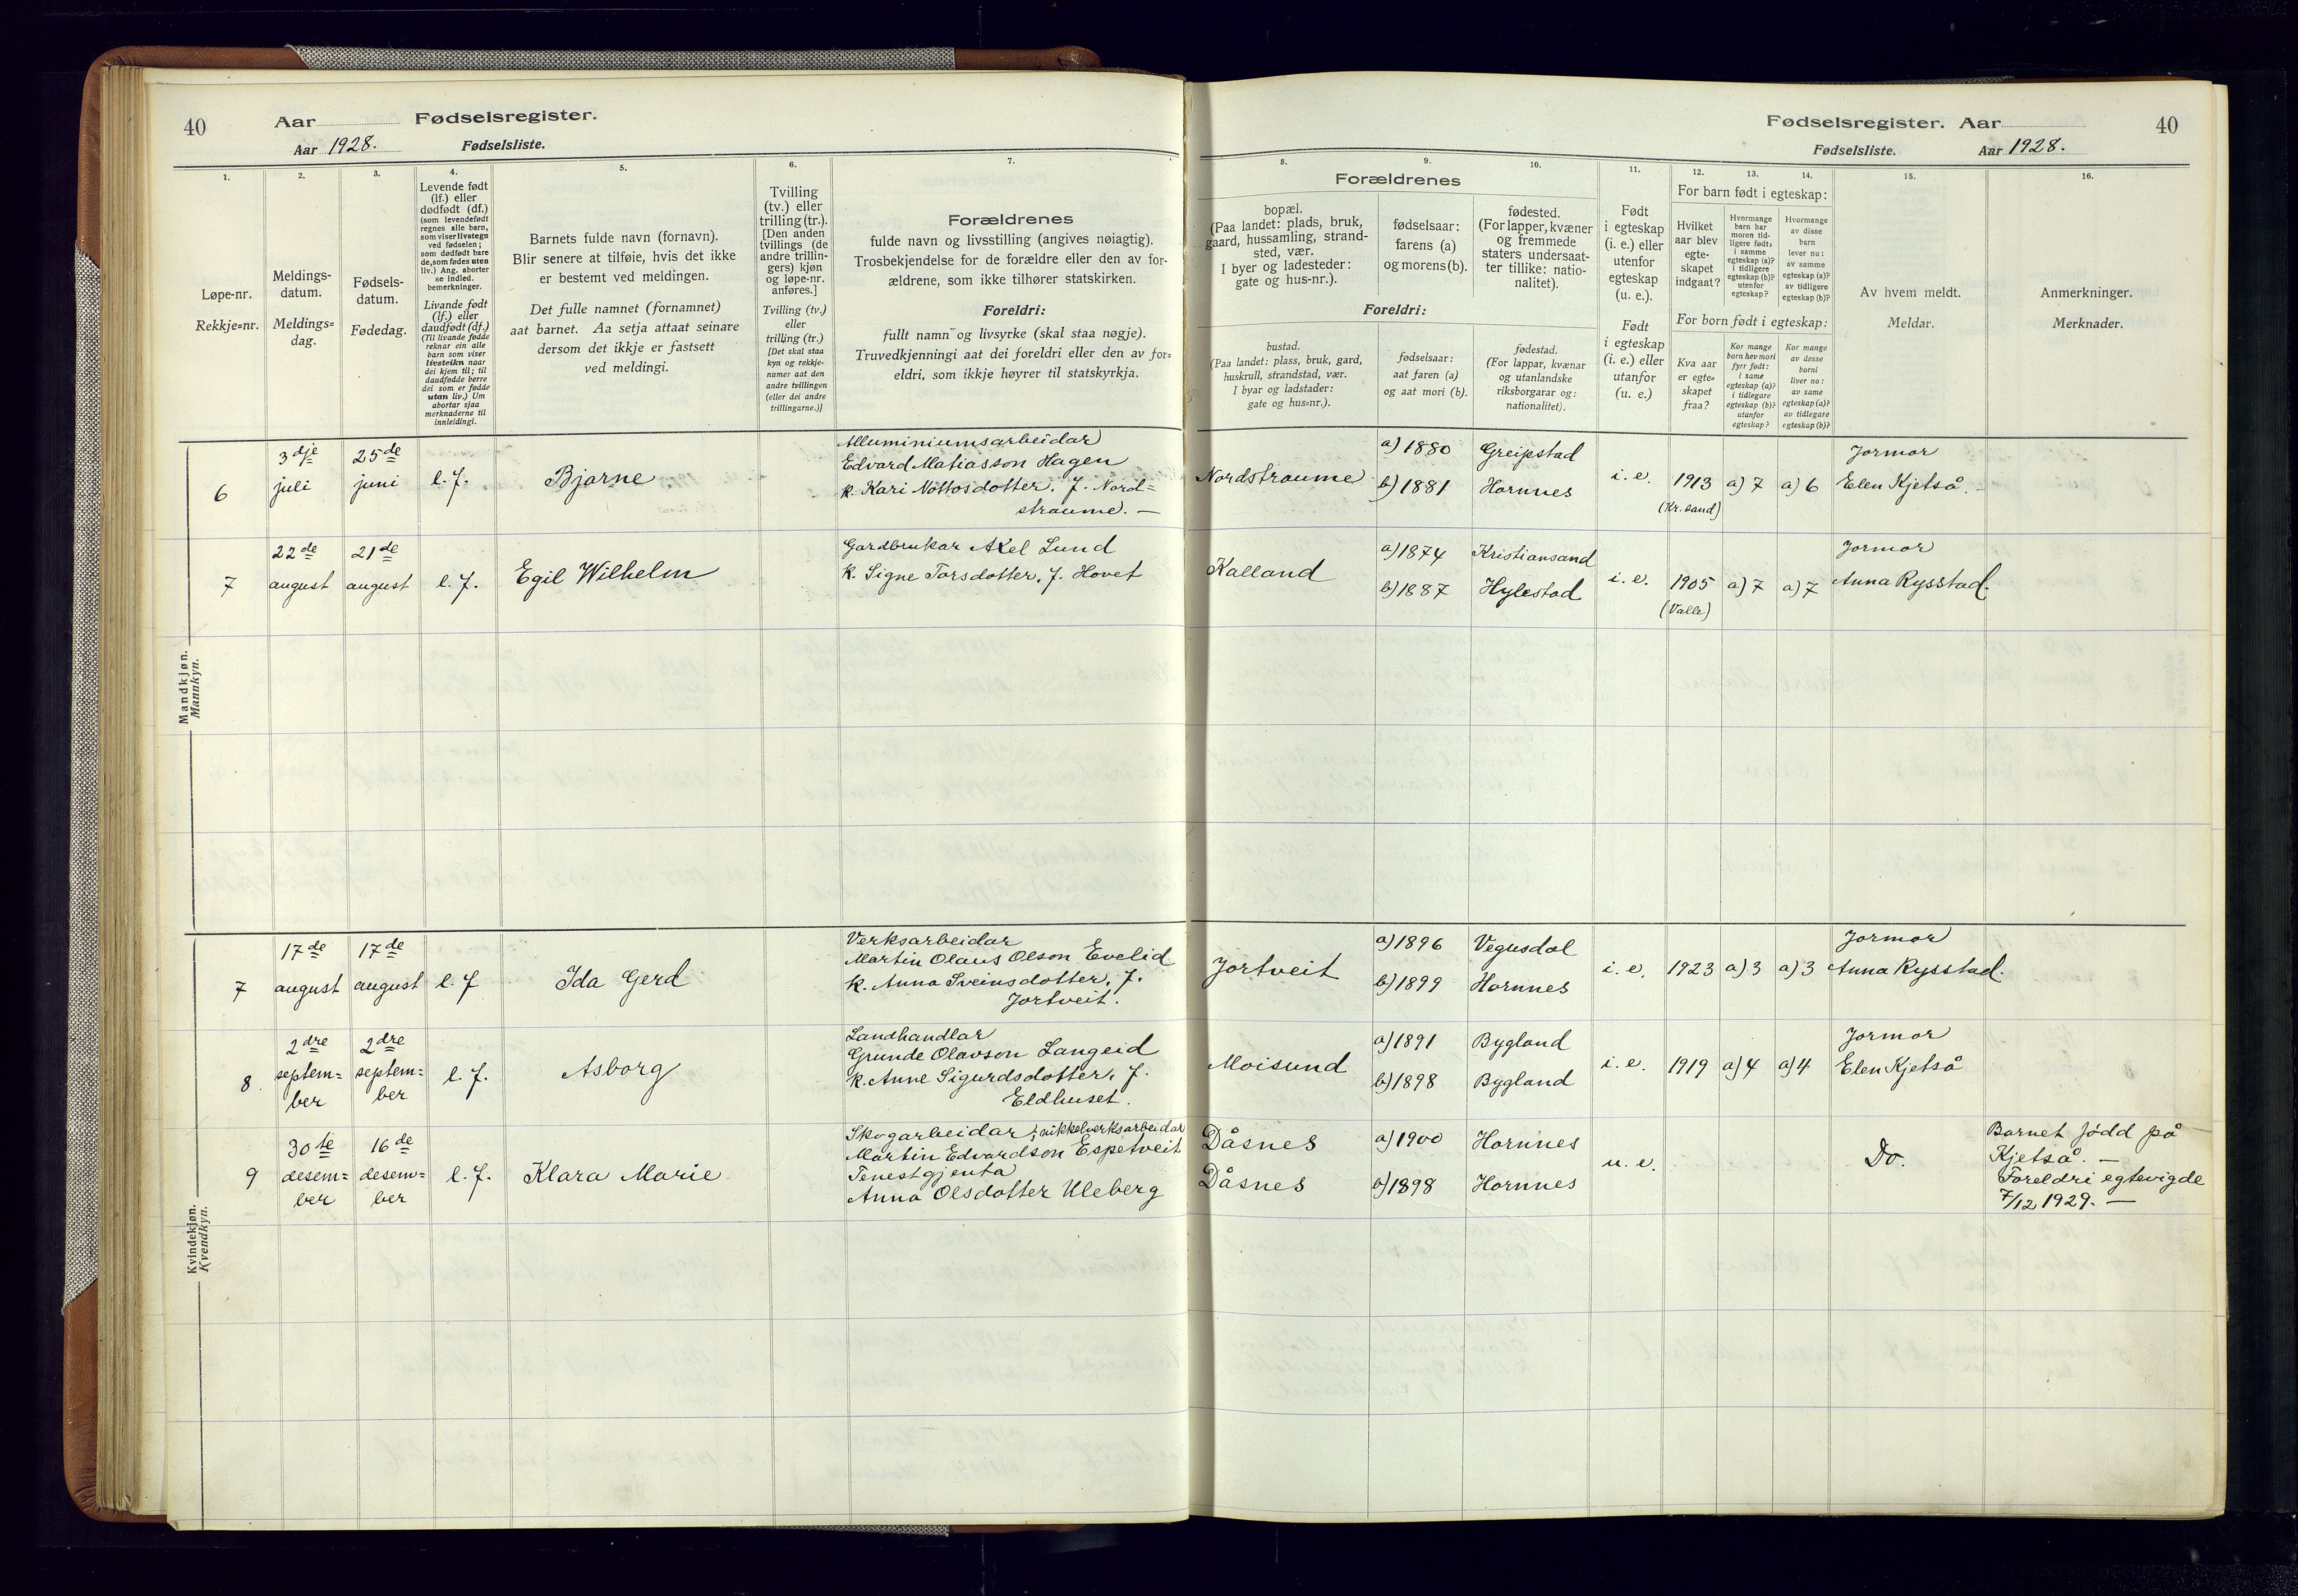 40
Aar
Fødselsregister.
Aar 1928.
Fødselsliste.
1.
2.
3.
4.
5.
6.
7.
Løpe-nr.
Rekkje=nr.
Meldings-
datum.
Meldings=
dag.
Fødsels-
datum.
Fødedag.
Levende født
(lf.) eller
dødfødt (df.)
(som levendefødt
regnes alle barn,
som viser livstegn
ved fødselen;
som dødfødt bare
de, som fødes uten
liv.) Ang. aborter
se indled.
bemerkninger.
Livande født
(lf.) eller
daudfødt (df.)
(Til livande fødde
reknar ein alle
barn som viser
livsteikn naar
dei kjem til; til
daudfødde berre
dei som er fødde
utan liv.) Um
abortar sjaa
merknaderne til
innleidingi.
Barnets fulde navn (fornavn).
Blir senere at tilføie, hvis det ikke
er bestemt ved meldingen.
Det fulle namnet (fornamnet)
aat barnet. Aa setja attaat seinare
dersom det ikkje er fastsett
ved meldingi.
Tvilling
(tv.) eller
trilling (tr.).
[Den anden
tvillings (de
andre trillin-
gers) kjøn
og løpe-nr.
anføres.]
Tvilling (tv.)
eller
trilling (tr.)
[Det skal staa
kyn og rekkje-
numer aat den
andre tvillingen
(eller dei andre
trillingarne.)]
Forældrenes
fulde navn og livsstilling (angives nøiagtig).
Trosbekjendelse for de forældre eller den av for-
ældrene, som ikke tilhører statskirken.
Foreldri:
fullt namn og livsyrke (skal staa nøgje).
Truvedkjenningi aat dei foreldri eller den av for=
eldri, som ikkje høyrer til statskyrkja.
Mandkjøn.
Mannkyn.
6
3dje
juli
25de
juni
l. f.
Bjarne
Alluminiumsarbeidar
Edvard Matiasson Hagen
k. Kari Nottosdotter. f. Nord=
straume. —
7
22de
august
21de
august
l. f.
Egil Wilhelm
Gardbrukar Axel Lund
k. Signe Torsdotter. f. Hovet
Kvindekjøn.
Kvendkyn.
7
17de
august
17de
august
l. f
Ida Gerd
Verksarbeidar
Martin Olaus Olson Evelid
k. Anna Sveinsdotter. f.
Fortveit.
8
2dre
septem=
ber
2dre
septem=
ber
l. f.
Asborg
Landhandlar
Grunde Olavson Langeid
k. Anne Sigurdsdotter. f.
Eldhuset.
9
30te
desem=
ber
16de
desem=
ber
l. f.
Klara Marie
Skogarbeidar; nikkelverksarbeidar
Martin Edvardson Espetveit
Tenestgjenta
Anna Olsdotter Uleberg
Fødselsregister. Aar
40
Fødselsliste.
Aar 1928.
8.
9.
10.
11.
12.
13.
14.
15.
16.
Forældrenes
bopæl.
(Paa landet: plads, bruk,
gaard, hussamling, strand-
sted, vær.
I byer og ladesteder:
gate og hus-nr.).
fødselsaar:
farens (a)
og morens (b).
fødested.
(For lapper, kvæner
og fremmede
staters undersaat-
ter tillike: natio-
nalitet).
Foreldri:
bustad.
(Paa landet: plass, bruk, gard,
huskrull, strandstad, vær.
I byar og ladstader:
gate og hus=nr.).
fødselsaar:
aat faren (a)
og aat mori (b).
fødestad.
(For lappar, kvænar
og utanlandske
riksborgarar og:
nationalitet).
Født
i egteskap
(i. e.) eller
utenfor
egteskap
(u. e.).
Født
i egteskap
(i. e.) eller
utanfor
(u. e.)
For barn født i egteskap:
Hvilket
aar blev
egte-
skapet
indgaat?
Hvormange
barn har
moren tid-
ligere født:
i samme
egteskap (a)?
i tidligere
egteskap (b)?
utenfor
egteskap?
Hvormange
av disse
barn
lever nu:
av samme
egteskap (a)?
av tidligere
egteskap (b)?
For born født i egteskap:
Kva aar
er egte=
skapet
fraa?
Kor mange
born hev mori
fyrr født:
i same
egteskap (a)?
i tidlegare
egteskap (b)?
utanfor
egteskap?
Kor mange
av desse
borni
liver no:
av same
egteskap (a)?
av tidlegare
egteskap (b)?
Av hvem meldt.
Meldar.
Anmerkninger.
Merknader.
Nordstraume
a) 1880
b) 1881
Greipstad
Hornnes
i. e.
1913
(Kr. sand)
a) 7
a) 6
Jormor
Elen Kjetså. -
Kalland
a) 1874
b) 1887
Kristiansand
Hylestad
i. e.
1905
(Valle)
a) 7
a) 7
Jormor
Anna Rysstad.
Fortveit
a) 1896
b) 1899
Vegusdal
Hornnes
i. e.
1923
a) 3
a) 3
Jormor
Anna Rysstad.
Moisund
a) 1891
b) 1898
Bygland
Bygland
i. e.
1919
a) 4
a) 4
Jormor
Elen Kjetså
Dåsnes
Dåsnes
a) 1900
b) 1898
Hornnes
Hornnes
u. e.
Do.
Barnet fødd på
Kjetså. —
Foreldri egtevigde
7/12 1929. —